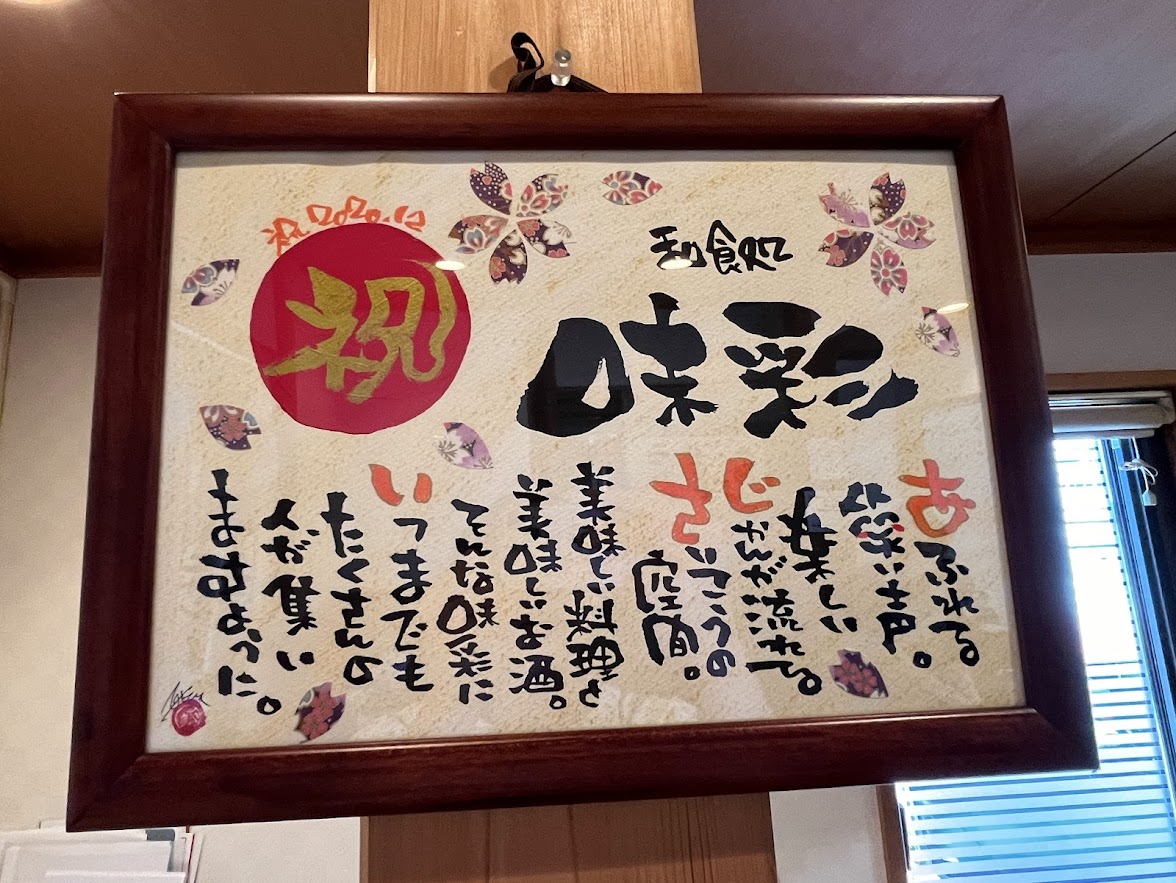 祝 2020.12
祝
和食処
味彩
あふれる
笑い声。
楽しい
じかんが流れる。
さいこうの
空間。
美味しい料理と
美味しいお酒。
そんな味彩に
いつまでも
たくさんの
人が集い
ますように。